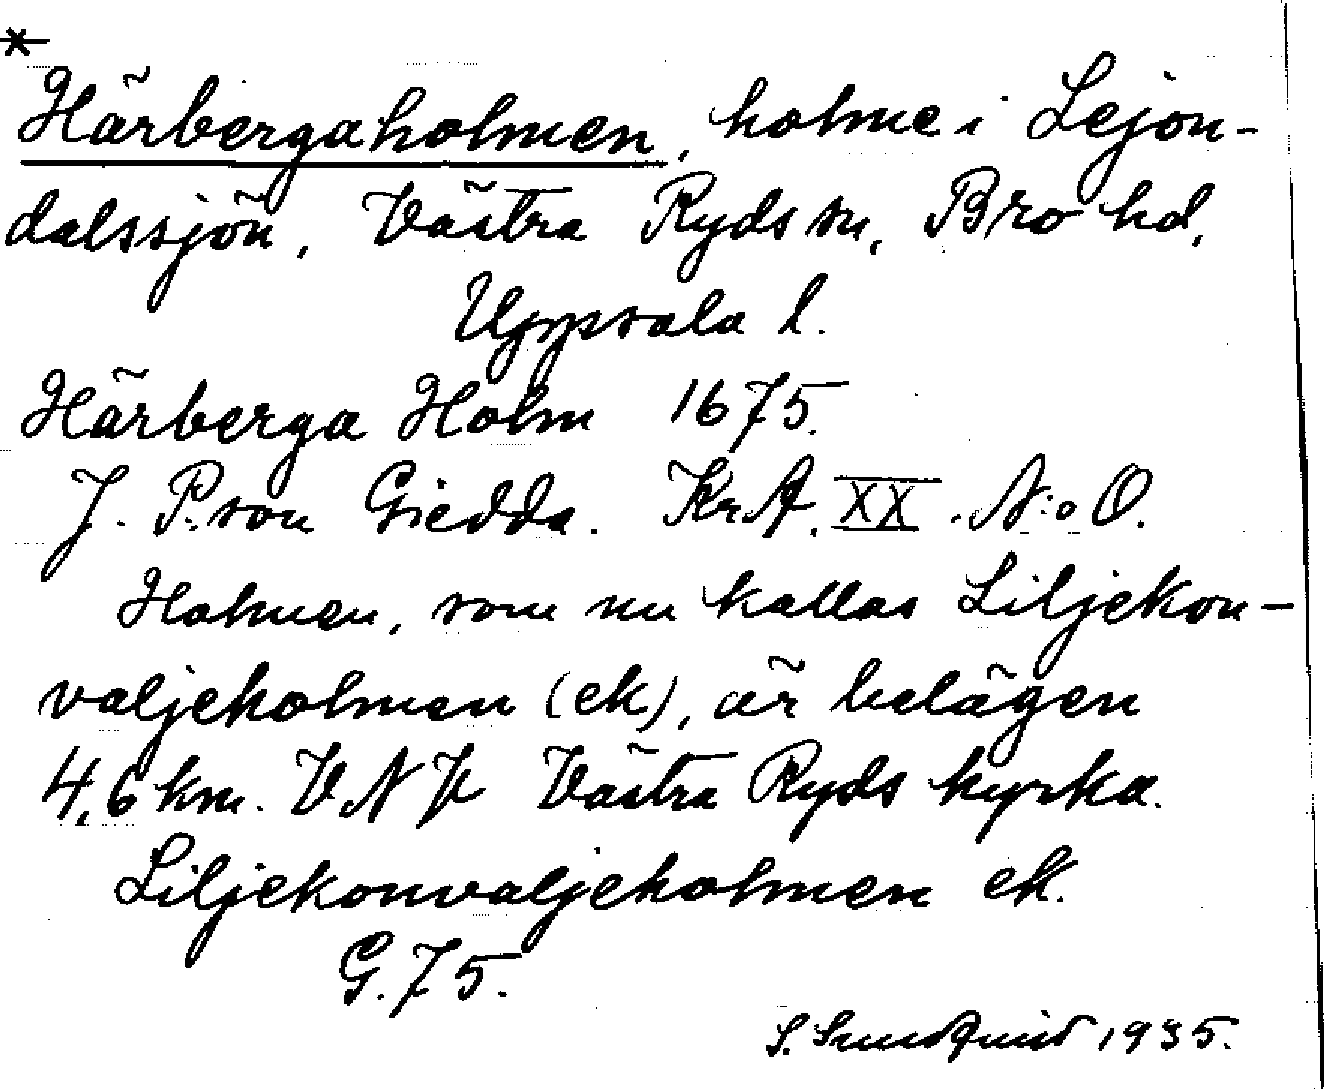 *
Härbergaholmen, holme i Lejon-
dalssjön, Västra Ryds sn, Bro hd,
Uppsala l.
Härberga Holm 1675.
J. P:son Giedda. KrA. XX. N:o O.
Holmen, som nu kallas Liljekon-
valjeholmen (ek), är belägen
4,6 km. V N V Västra Ryds kyrka.
Liljekonvaljeholmen ek.
G. 75.
S. Sundquist 1935.